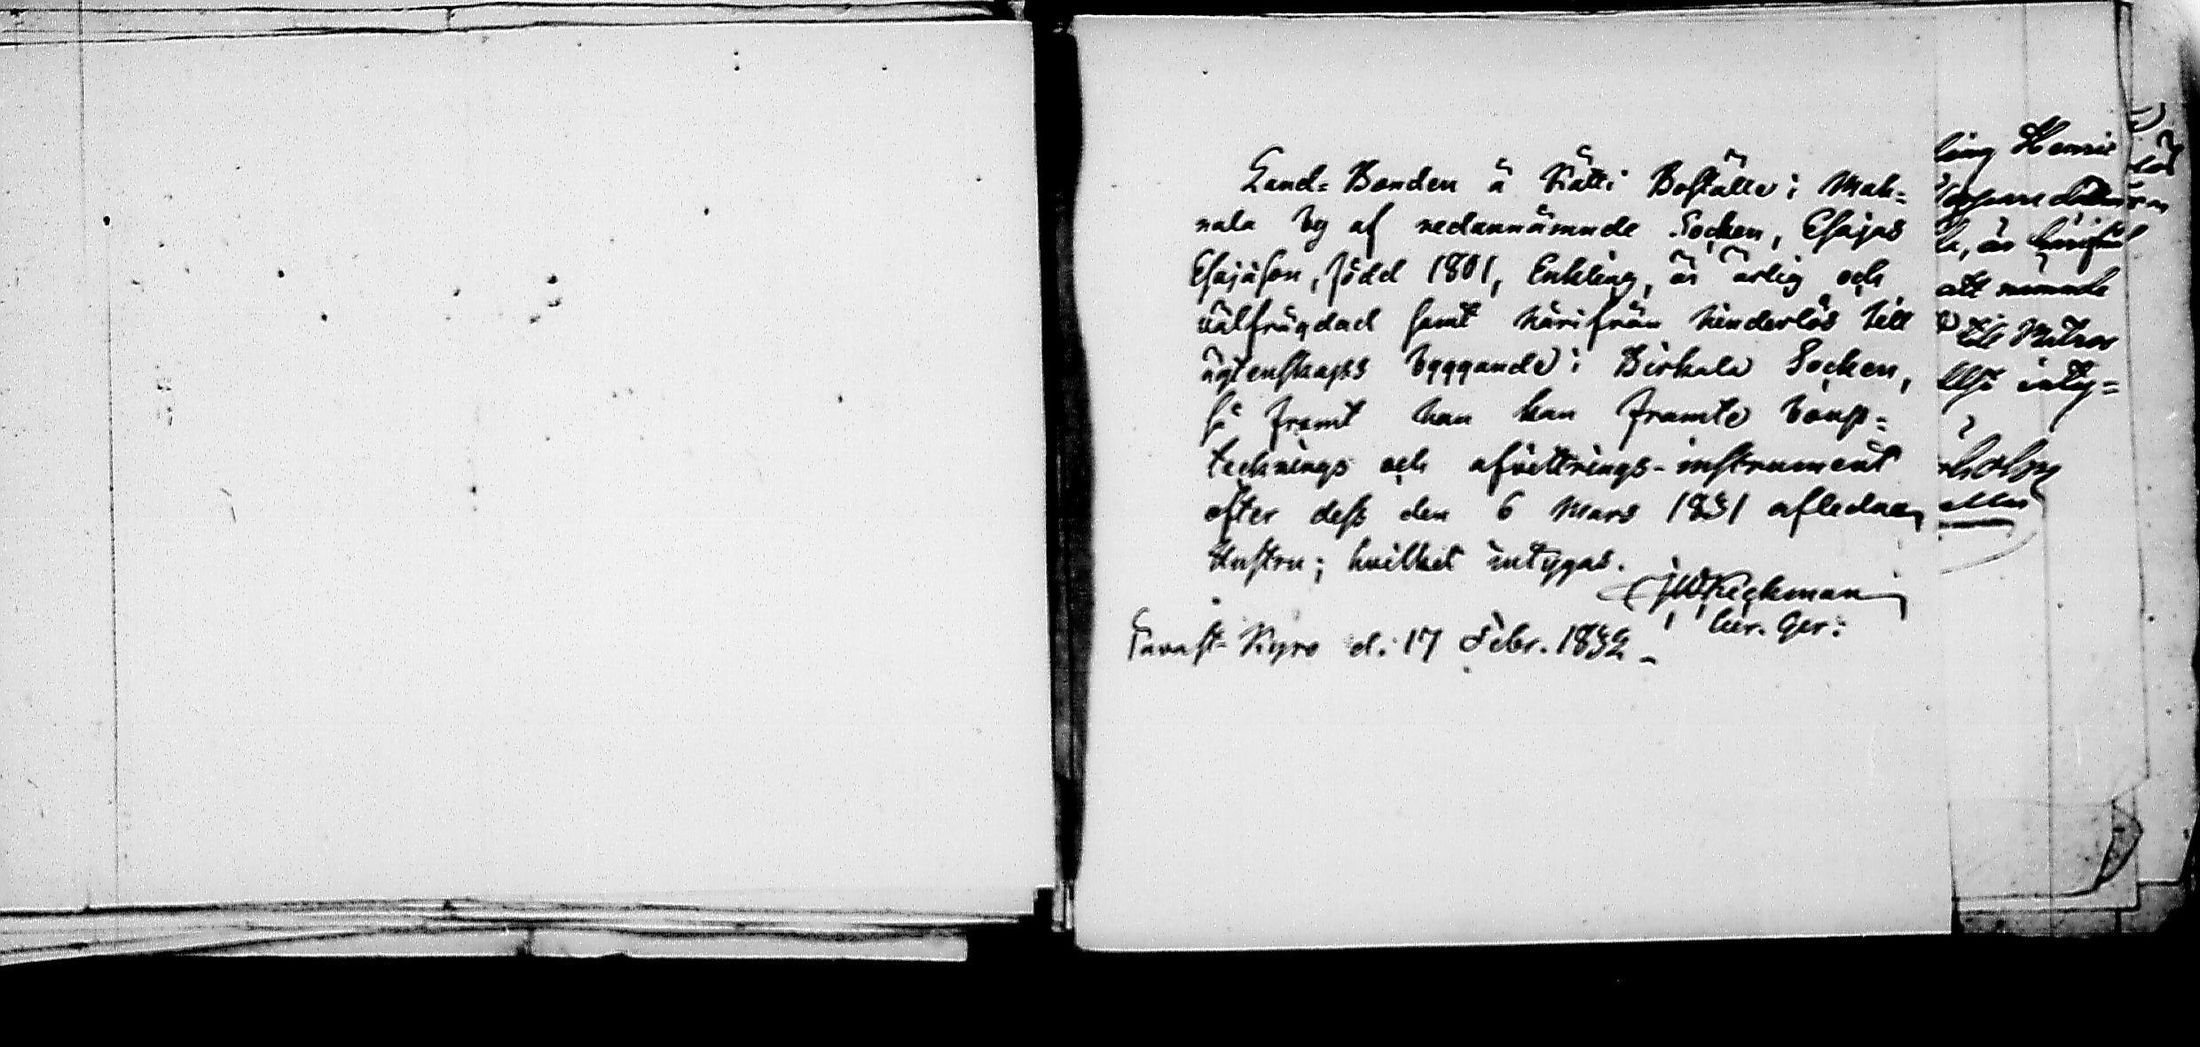 Land-Bonden å Kätti Boställe i Mah-
nala by af nedannämnde Socken, Esajas
Esajæson, född 1801, Enkling, är ärlig och
välfrägdad samt härifrån hinderlös till
ägtenskaps byggande i Birkala Socken,
så framt han kan framte boup-
tecknings och afvittrings-instrument
efter dess den 6 Mars 1831 aflednae
Hustru; hvilket intygas.
Kyrc d. 17 Febr. 1832
Cur. Ger:
Henric
är härifrån
att nämnde
till
inty-